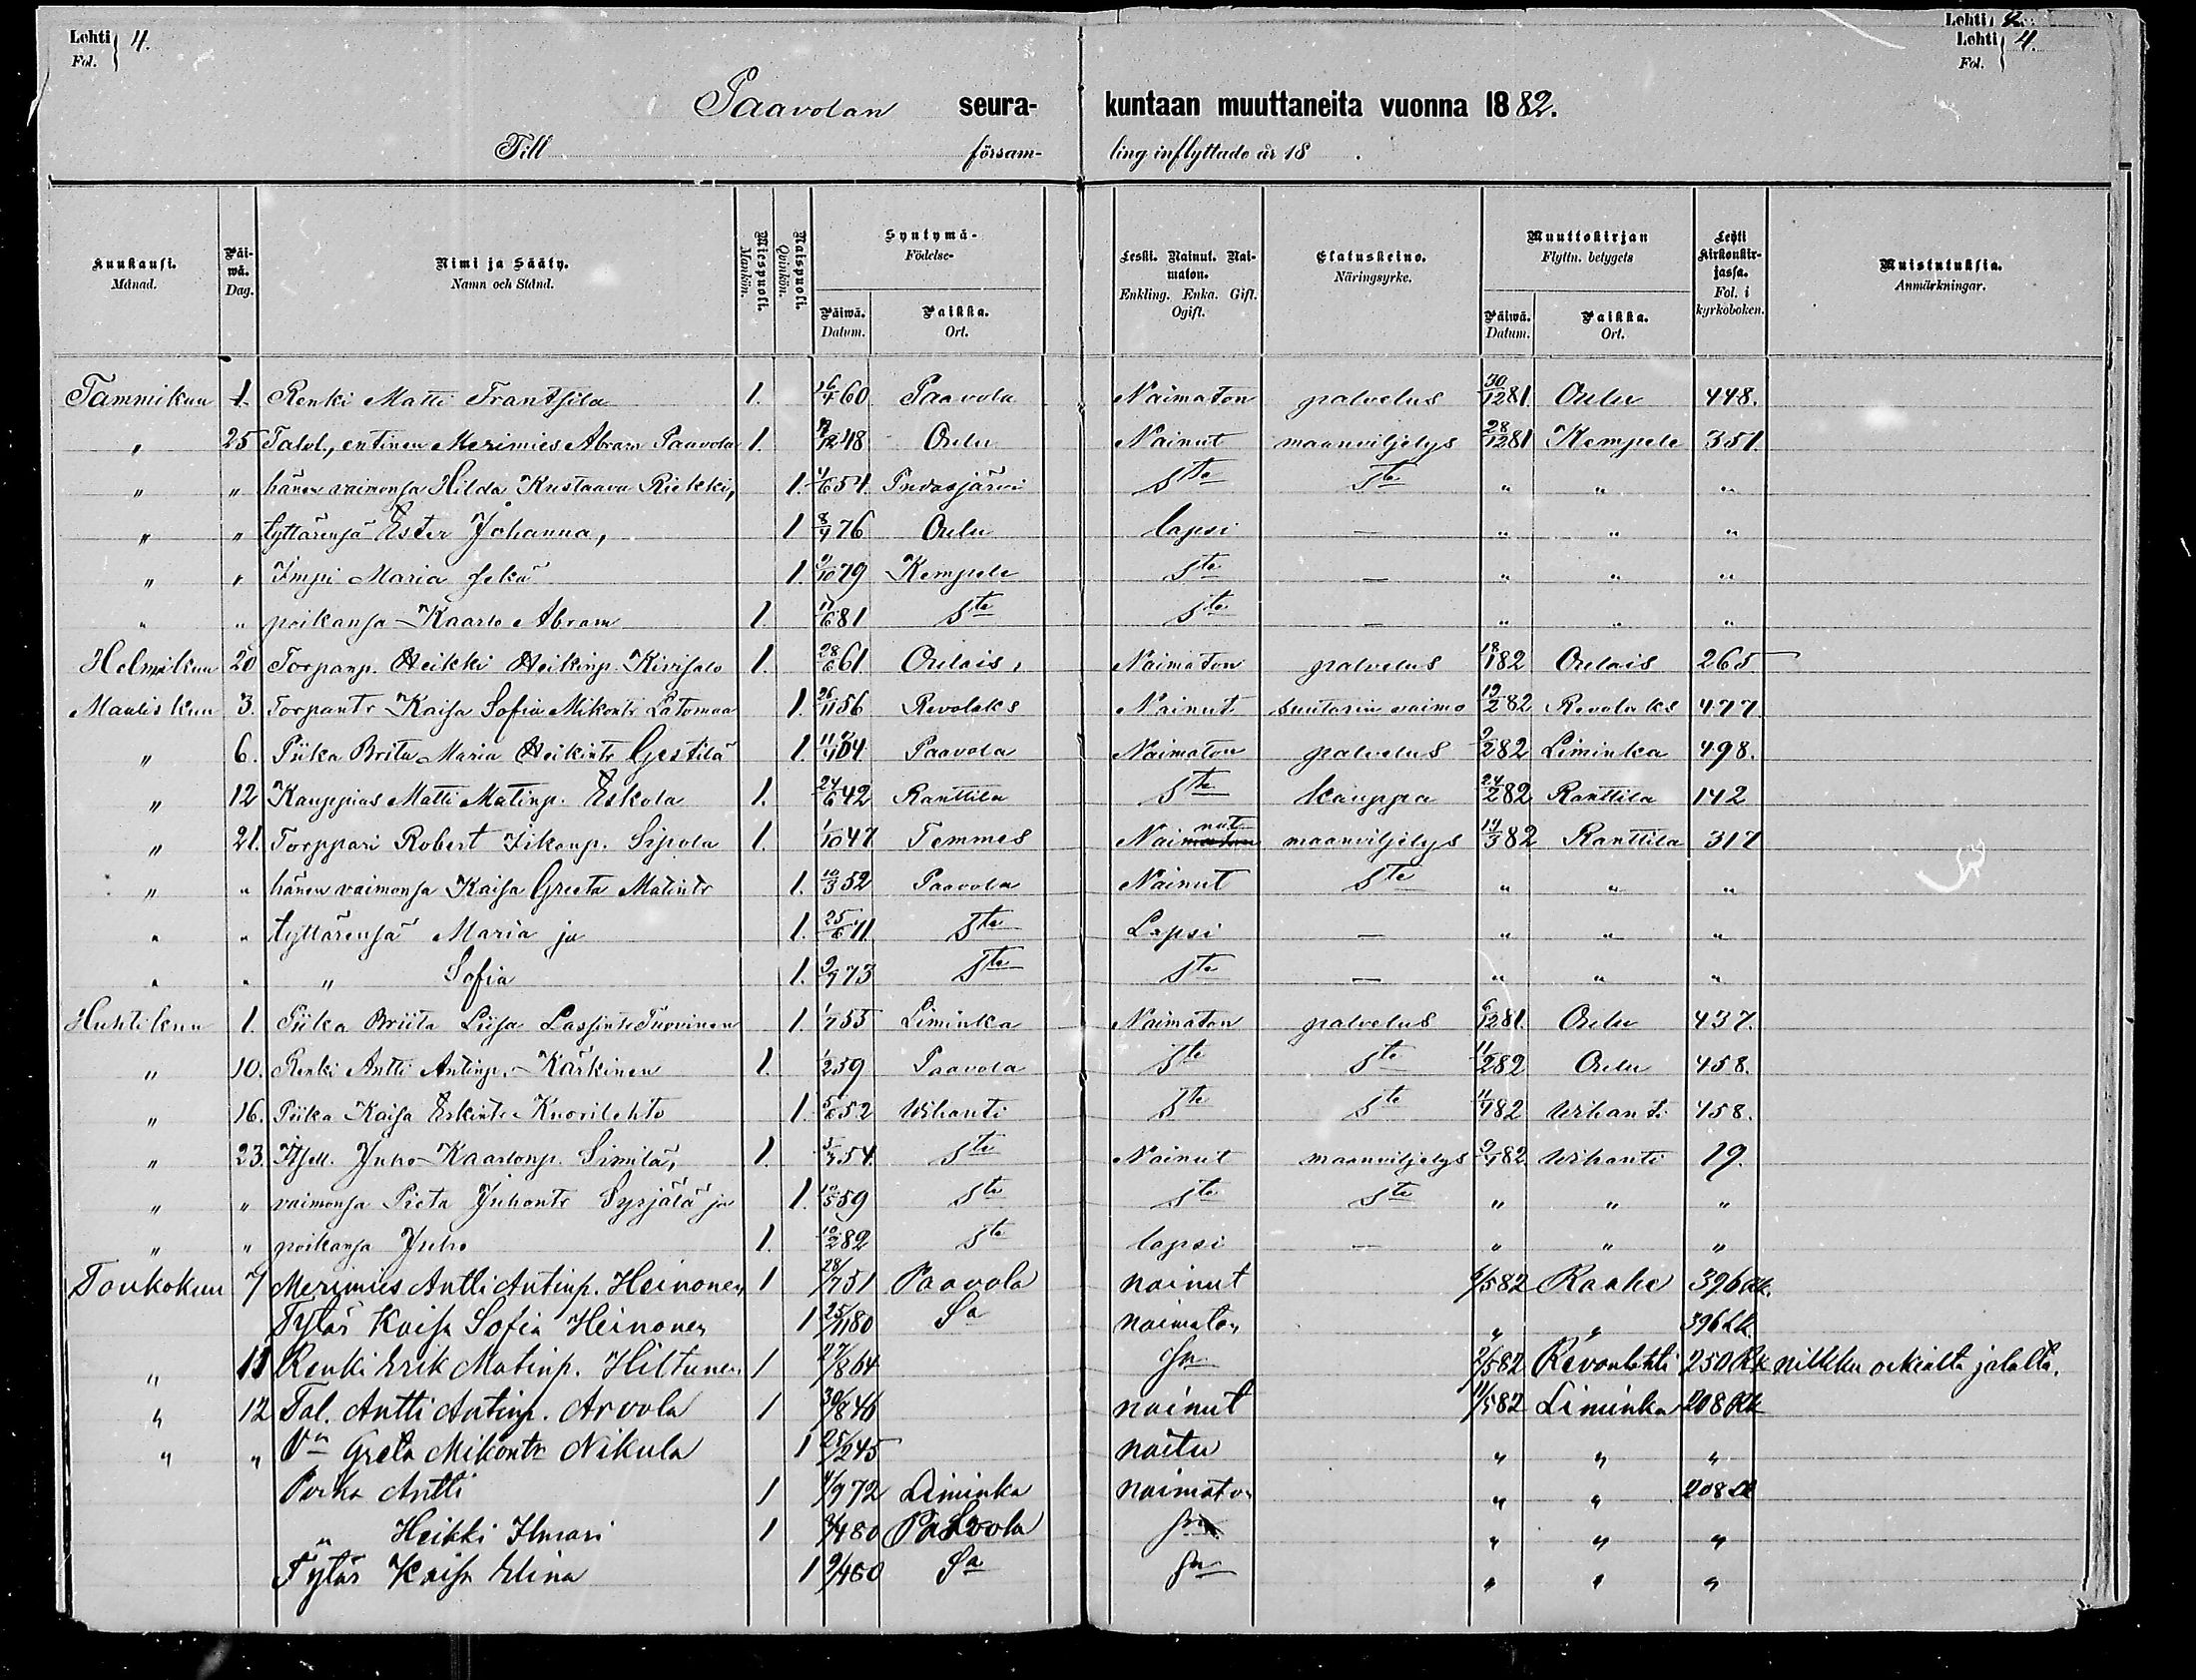 Lehti 4.
Fol.
Lehti 2.
Lehti 4.
Fol.
Paavolan seura- kuntaan muuttaneita vuonna 1882.
Till församling inflyttade år 18 .
Kuukausi. Månad. | Päiwä. Dag. | Nimi ja Sääty. Namn och Stånd. | Miespuoli. Mankön. | Naispuoli. Qvinkön. | Syntymä- Födelse- Päiwä. Datum. | Paikka. Ort. | Leski. Nainut. Naimaton. Enkling. Enka. Gift. Ogift. | Elatuskeino. Näringsyrke. | Muuttokirjan Flyttn. betygets Päiwä. Datum. | Paikka. Ort. | Lehti Kirkonkirjassa. Fol. i kyrkoboken. | Muistutuksia. Anmärkningar.
Tammikuu 1. Renki Matti Frantsila 1. 60 Paavola Naimaton palvelus 30/12 81. Oulu 448.
" 25 Talol., entinen Merimies Abram Paavola 1. 48 Oulu Nainut maanviljelys 28/12 81 Kempele 351.
" " hänen vaimonsa Hilda Kustaava Riekki, 1. 4/6 54. Pudasjärvi Ste Ste " " "
" " tyttärensä Ester Johanna, 1 8/9 76 Oulu lapsi — " " "
" " Impi Maria sekä 1. 9/10 79 Kempele Ste — " " "
" " poikansa Kaarlo Abram 1. 11/6 81 Ste Ste — " " "
Helmikuu 20 Torpanp. Heikki Heikinp. Kivisalo 1. 28/6 61 Oulais, Naimaton palvelus 18/1 82 Oulais 265
Maaliskuu 3. Torpantr Kaisa Sofia Mikontr Latomaa 1. 26/11 56 Revolaks Nainut suutarin vaimo 12/2 82 Revolaks 477
" 6. Piika Brita Maria Heikintr Gestilä 1. Paavola Naimaton palvelus 9/2 82 Liminka 498.
" 12 Kauppias Matti Matinp. Eskola 1. 24/6 42 Ranttila Ste kauppa 24/2 82 Ranttila 142
" 21. Torppari Robert Iikanp. Sipola 1. 1/10 47 Temmes Nainut maanviljelys 14/3 82 Ranttila 317
" " hänen vaimonsa Kaisa Greeta Matintr 1. 10/3 52 Paavola Nainut Ste " " "
" " tyttärensä Maria ja 1. 25/6 71. Ste Lapsi — " " "
" " " Sofia 1. 9/7 73 Ste Ste — " " "
Huhtikuu 1. Piika Briita Liisa Lassintr Tuovinen 1. 1/7 55 Liminka Naimaton palvelus 6/12 81. Oulu 437.
" 10. Renki Antti Antinp. Kärkinen 1. 1/2 59 Paavola Ste Ste 11/2 82 Oulu 458.
" 16. Piika Kaisa Erkintr Kuorilehto 1. 5/6 52 Wihanti Ste Ste 11/4 82 Wihanti 458.
" 23. Itsell. Juho Kaarlonp. Similä, 1. 54. Ste Nainut maanviljelys 9/4 82 Wihanti 19.
" " vaimonsa Pieta Juhontr Syrjälä ja 1. 10/5 59 Ste Ste Ste " " "
" " poikansa Juho 1. 10/2 82 Ste lapsi — " " "
Toukokuu 7 Merimies Antti Antinp. Heinonen 1 28/7 51 Paavola nainut 6/5 82 Raahe 396 Rk.
Tytär Kaisa Sofia Heinonen 1 25/11 80 Sa naimaton " " 396 Lk.
" 11 Renki Erik Matinp. Hiltunen 1 27/8 64 Sn 2/5 82 Revonlahti 250 Rk nilkku oikialta jalalta.
" 12 Tal. Antti Antinp. Arvola 1 30/8 46 nainut 11/5 82 Liminka 208 Rk
" " Vn Greta Mikontr Nikula 1 25/2 45 naitu " " "
Poika Antti 1 4/9 72 Liminka naimaton " " 208
" Heikki Ilmari 1 480 Paavola " " "
Tytär Kaisa Elina 1 9/4 80 Sa Sn " " "